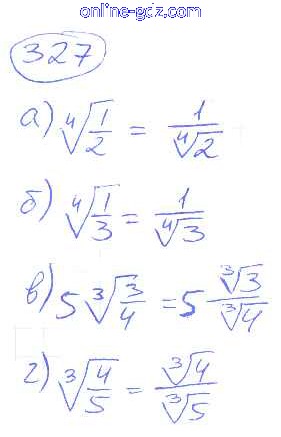 online-gdz.com
327
а) ⁴√(1/2) = 1/⁴√2
б) ⁴√(1/3) = 1/⁴√3
в) 5 ³√(3/4) = 5 ³√3/³√4
г) ³√(4/5) = ³√4/³√5